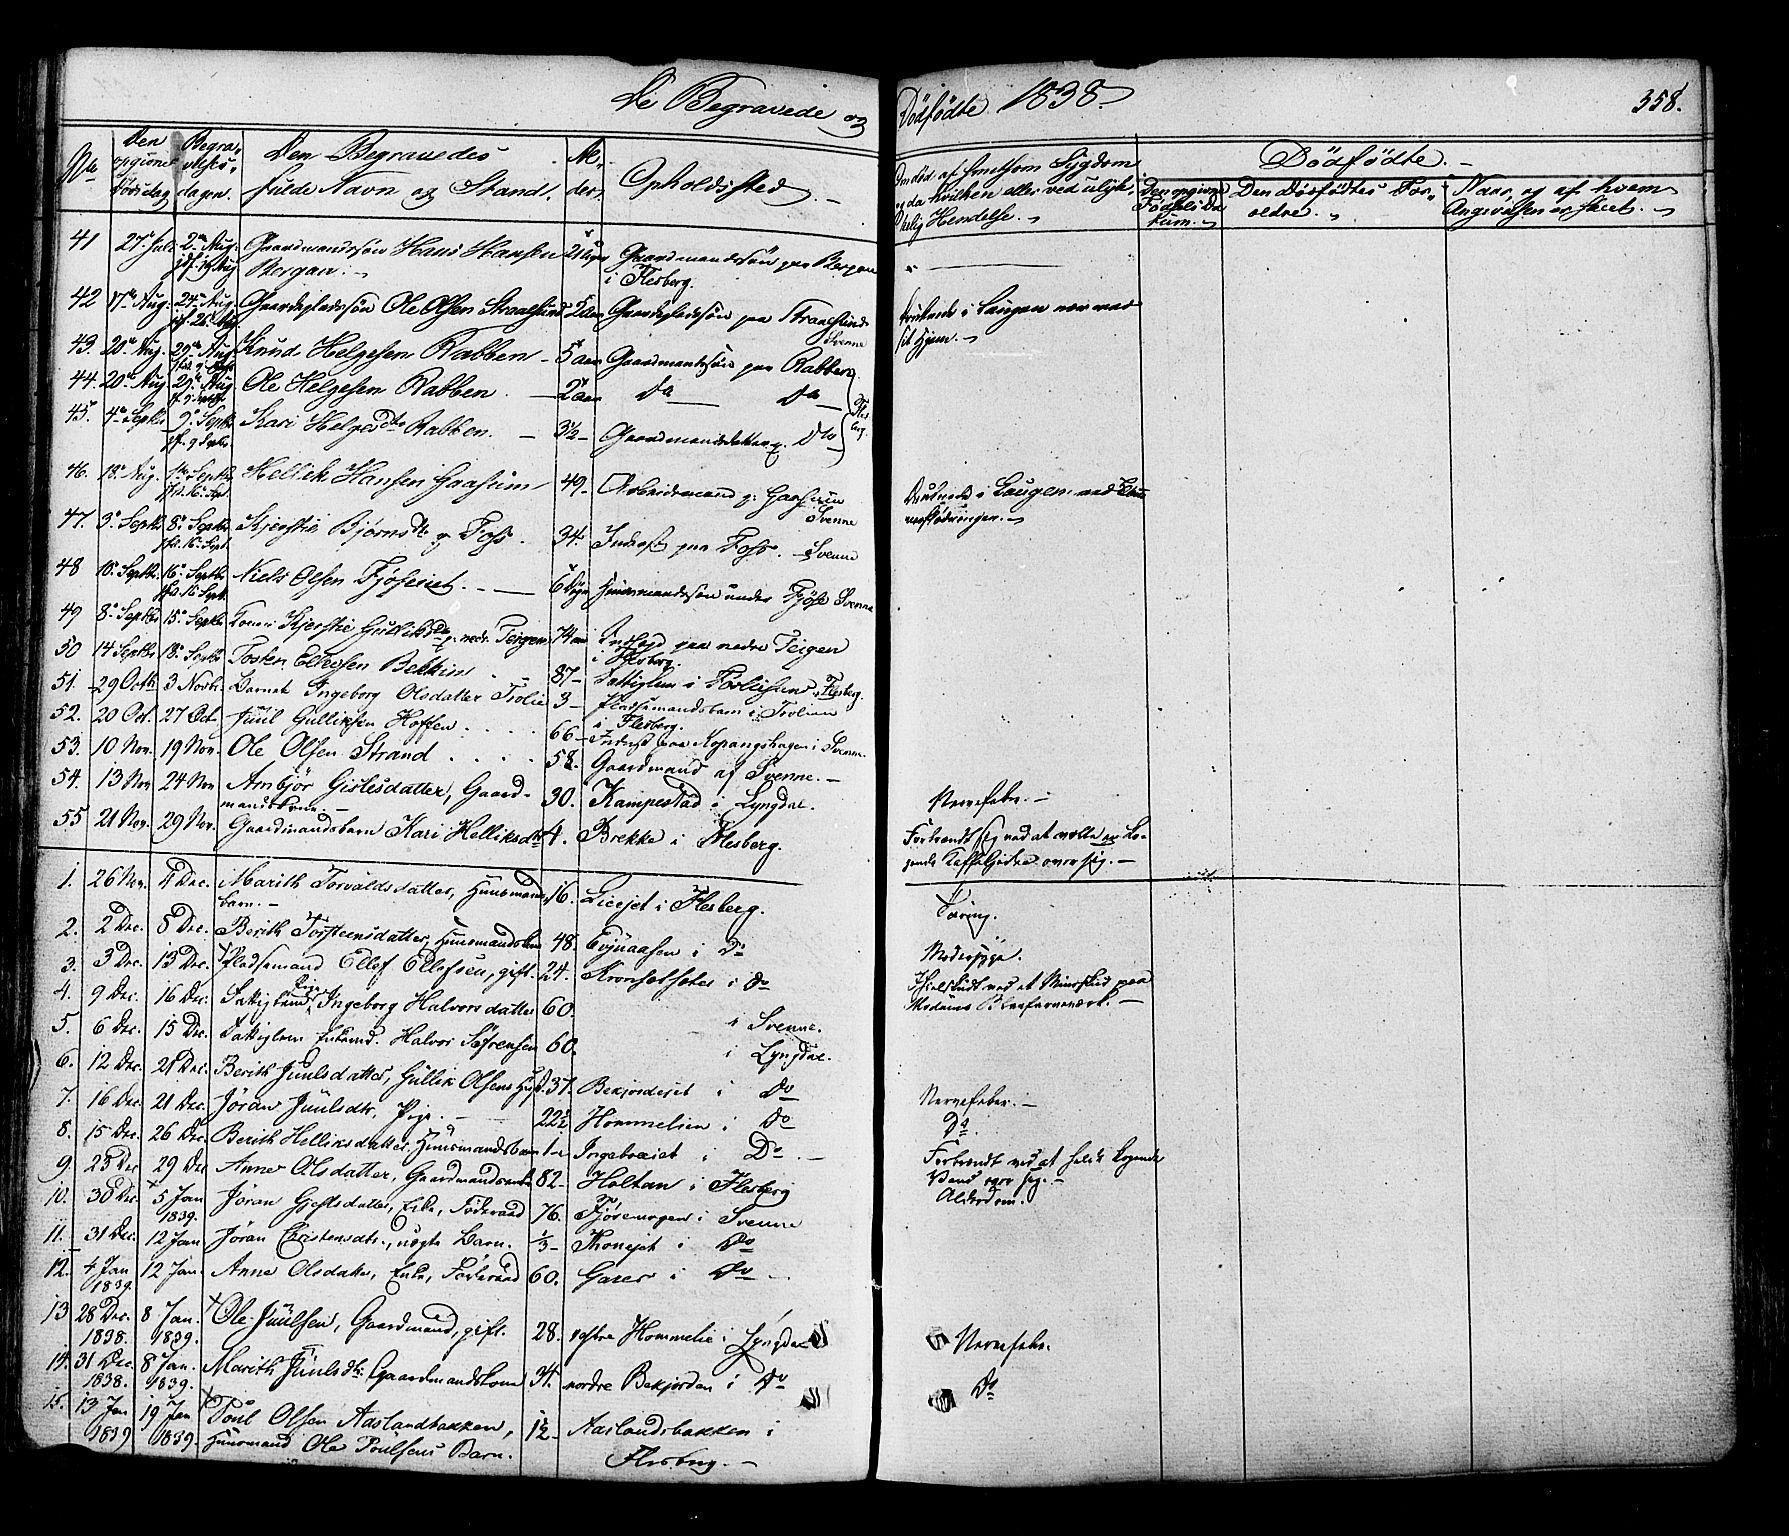 De Begravede og
Dödfödte 1838.
358.
No
Den opgivne Dödsdag
Begravelses-dagen.
Den Begravedes fulde Navn og Stand.
Alder.
Opholdssted.
Om död af smitsom Sygdom og da hvilken eller ved ulykkelig Hendelse.
Dödfödte.
Den opgivne Födsels Datum.
Den Dödfödtes Forældre.
Naar, og af hvem Angivelsen er skeet.
41 27 Juli 2 Aug. Gaardmandssön Hans Hansen Bergan. Gaardmandssön paa Bergan i Flesberg.
42 17 Aug. 24 Aug. Ole Olsen 2 aar
drukned i Laugen
43. 20 Aug. 29 Aug Knud Helgesen Rabben 5 aar Gaardmandssön paa Rabben
44. 20 Aug 29 Aug Ole Helgesen Rabben. 2 aar Do Do
45. 4 Septbr 9 Septbr Kari Helgesdtr Rabben. 3½ Gaardmandsdatter p. Do
46. 18 Aug. Septbr Hellick Hansen Gaasum 49 Arbeidsmand p. Gaasum Svenne
Druknede i Laugen ved
47. 3 Septbr 8 Septbr Kjerstie Björnsdtr Foss. 34. Inderst paa Foss. Svenne
48 10 Septbr 16 Septbr Niels Olsen Fjöseiet. 6 Huusmandssön under Fjöse Svenne
49 8 Septbr 15 Septbr Kjerstie Gulliksdtr p. nedre Teigen 74 aar paa nedre Teigen i Flesberg.
50 14 Septbr 18 Septbr Tosten Bekkin 87 Fattiglem i Flesberg.
51. 29 Octb 3 Novbr. Barnet Ingeborg Olsdatter Trolie 3 Pladsemandsbarn i Trolien i Flesberg.
52. 20 Oct. 27 Oct Juul Gulliksen Hoffen 66 Inderst paa Kopangshagen i Svenne
53. 10 Nov. 19 Nov. Ole Olsen Strand 58. Gaardmand af Svenne.
54. 13 Nov 24 Nov Anbjör Gislesdatter, Gaardmandskone. 30. Kampestad i Lyngdal.
Nervefeber.
55 21 Nov. 29 Nov. Gaardmandsbarn Kari Helliksdtr 4. Brekke i Flesberg.
Forbrændt sig ved at vælte en kogende Kaffekjedel over sig.
1. 26 Nov. 4 Dec. Marith Torvaldsdatter, Huusmandsbarn. 16. Liceiet i Flesberg.
Tæring.
2. 2 Dec. 8 Dec. Berith Torsteensdatter, Huusmandskone 48. Evjuaasen i Do
Modersyge.
3. 3 Dec. 13 Dec. Pladsemand Ellef Ellefsen, gift. 24. i do
Ihjelslået ved et Minaskud paa Modums Blaafarveværk.
4. 9 Dec. 16 Dec. Pige Ingeborg Halvorsdatter 60. i Svenne.
5. 6 Dec. 15 Dec. Fattiglem Enkemd. Halvor Söfrensen 60. i Lyngdal.
6. 12 Dec. 21 Dec. Berith Juulsdatter, Gullik Olsens 37. Bekjordeiet i Do
Nervefeber.
7. 16 Dec. 21 Dec. Jöran Juulsdtr, Pige. 22½ Hommelien i Do
Do.
8. 15 Dec. 26 Dec. Berith Helliksdatter, Huusmandsbarn 1 Ingebræiet i Do
Forbrændt ved at helde kogende Vand over sig.
9. 23 Dec 29 Dec Anne Olsdatter, Gaardmandsenke 82 Holtan i Flesberg
Alderdom.
10. 30 Dec 5 Jan 1839. Jöran Enke, Föderaad 76. Fjöremogen i Svenne
11. 31 Dec. 12 Jan Jöran Christensdtr., uægte Barn. ⅓ Thoneiet i Do
12. 4 Jan 1839. 12 Jan. Anne Olsdatter, Enke, Föderaad 60. Gaser i Do
13 28 Dec. 1838. 8 Jan. 1839. Ole Juulsen, Gaardmand, gift. 28. vestre Hommelie i Lyngdal
Nervefeber.
14. 31 Dec. 1838. 8 Jan. 1839. Marith Juulsdtr. Gaardmandskone 34. nordre Bekjorden i Do
Do
15. 13 Jan 1839 19 Jan 1839. Poul Olsen Aaslandbakken, Huusmand Ole Poulsens Barn. 1½ Aaslandsbakken i Flesberg.